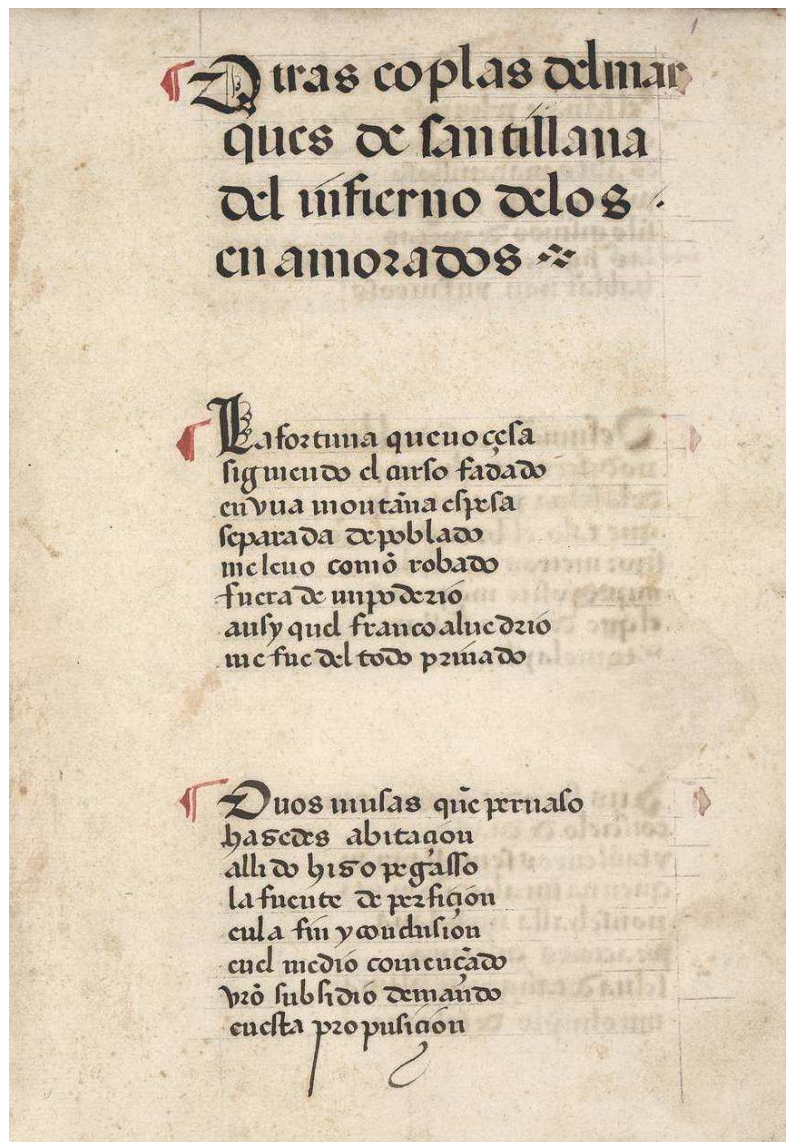 ¶ Otras coplas del mar
ques de santillana
del infierno delos
en amorados
¶ La fortuna que no çesa
siguiendo el curso fadado
en vna montan̄a espesa
separada de poblado
me leuo com̄o robado
fuera de mi poderio
ansy quel franco aluedrio
me fue del todo priuado
¶ O vos musas quē pernaso
hasedes abitaçion
alli do hiso pegasso
la fuente de perfiçion
en la fin y conclusion
en el medio començādo
vr̄o subsidio demando
en esta proposiçion